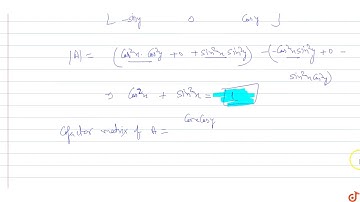 -siny 0 cosy ]
|A| = (cos²x·cos²y + 0 + sin²x sin²y) - (-cos²x sin²y + 0 - sin²x cos²y)
⇒ cos²x + sin²x = 1
Cofactor matrix of A = cosx cosy